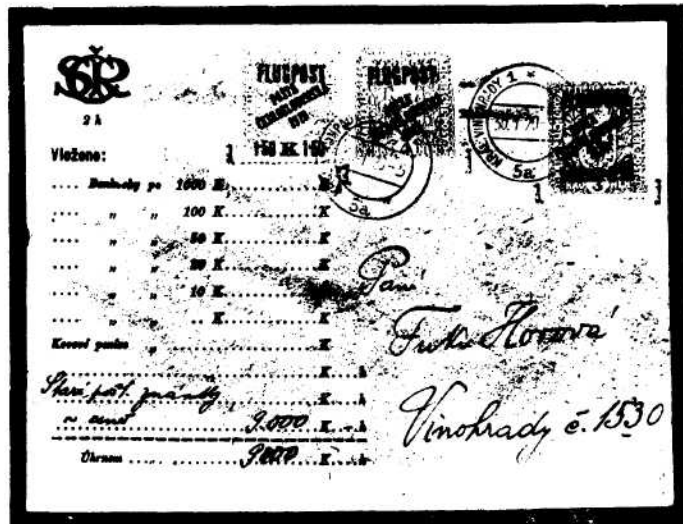 SČP
2 h
FLUGPOST
POŠTA
ČESKOSLOVENSKÁ
1919
1·50 K 1·50
FLUGPOST
POŠTA
ČESKOSLOVENSKÁ
KRÁL. VINOHRADY 1 *
5a
5a
Vloženo:
.... Bankovky po 1000 K..............K
.... „ „ 100 K..............K
.... „ „ 50 K..............K
.... „ „ 20 K..............K
.... „ „ 10 K..............K
.... „ „ .. K..............K
Kovové peníze „ ..............K
..............K....h
Staré pošt. známky K....h
~ ceně 9.000 K.-.h
Úhrnem .... 9.000 K....h
Paní
Horová
Vinohrady č. 1530